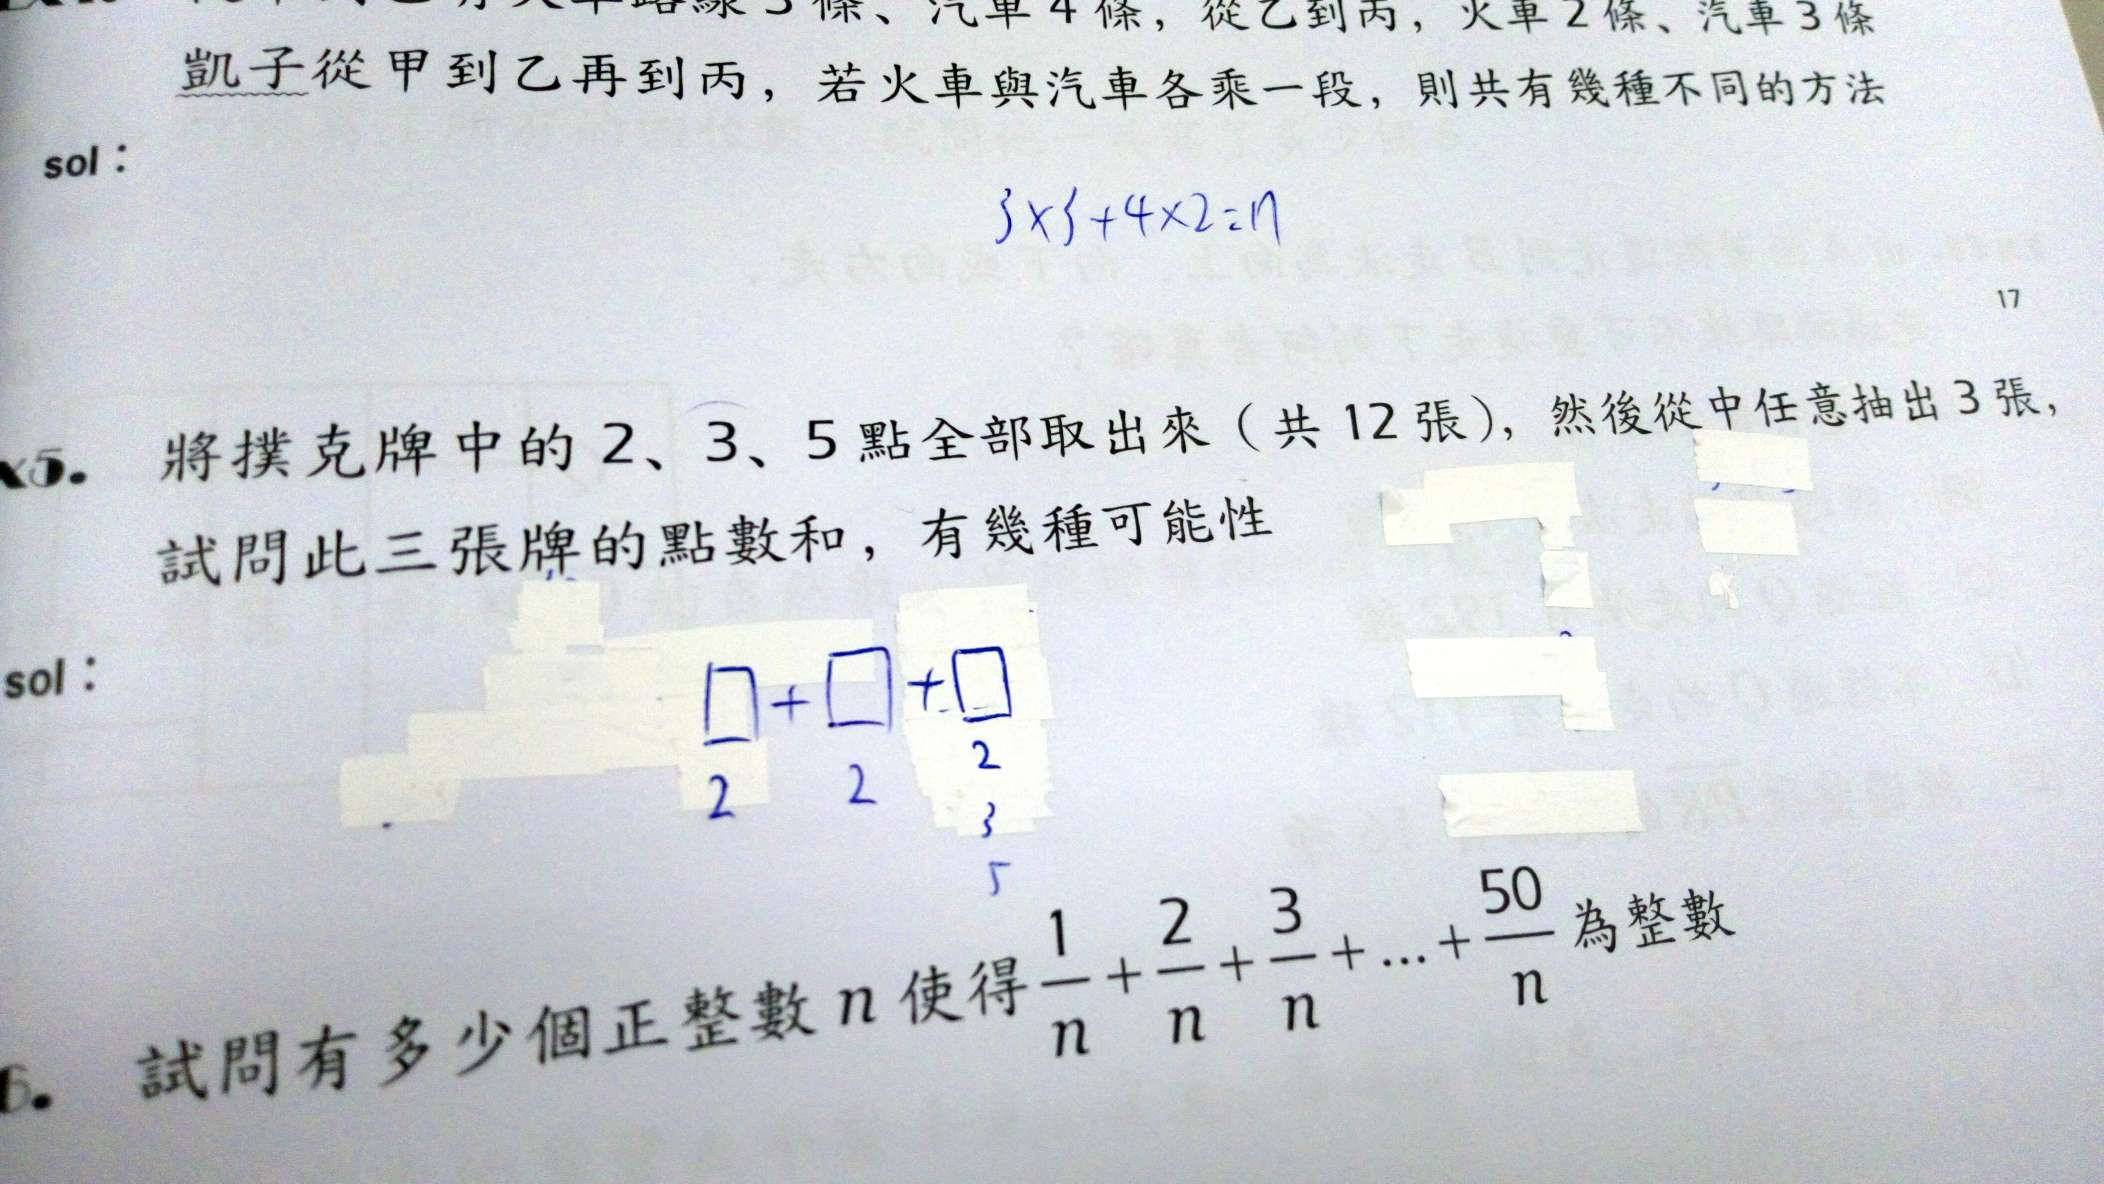 火車路線3條、汽車4條，從乙到丙，火車2條、汽車3條
凱子從甲到乙再到丙，若火車與汽車各乘一段，則共有幾種不同的方法
sol：
3×3+4×2=17
17
x5. 將撲克牌中的2、3、5點全部取出來（共12張），然後從中任意抽出3張，
試問此三張牌的點數和，有幾種可能性
sol：
□+□+□
2 2 2
3
5
6. 試問有多少個正整數n使得1/n+2/n+3/n+...+50/n為整數